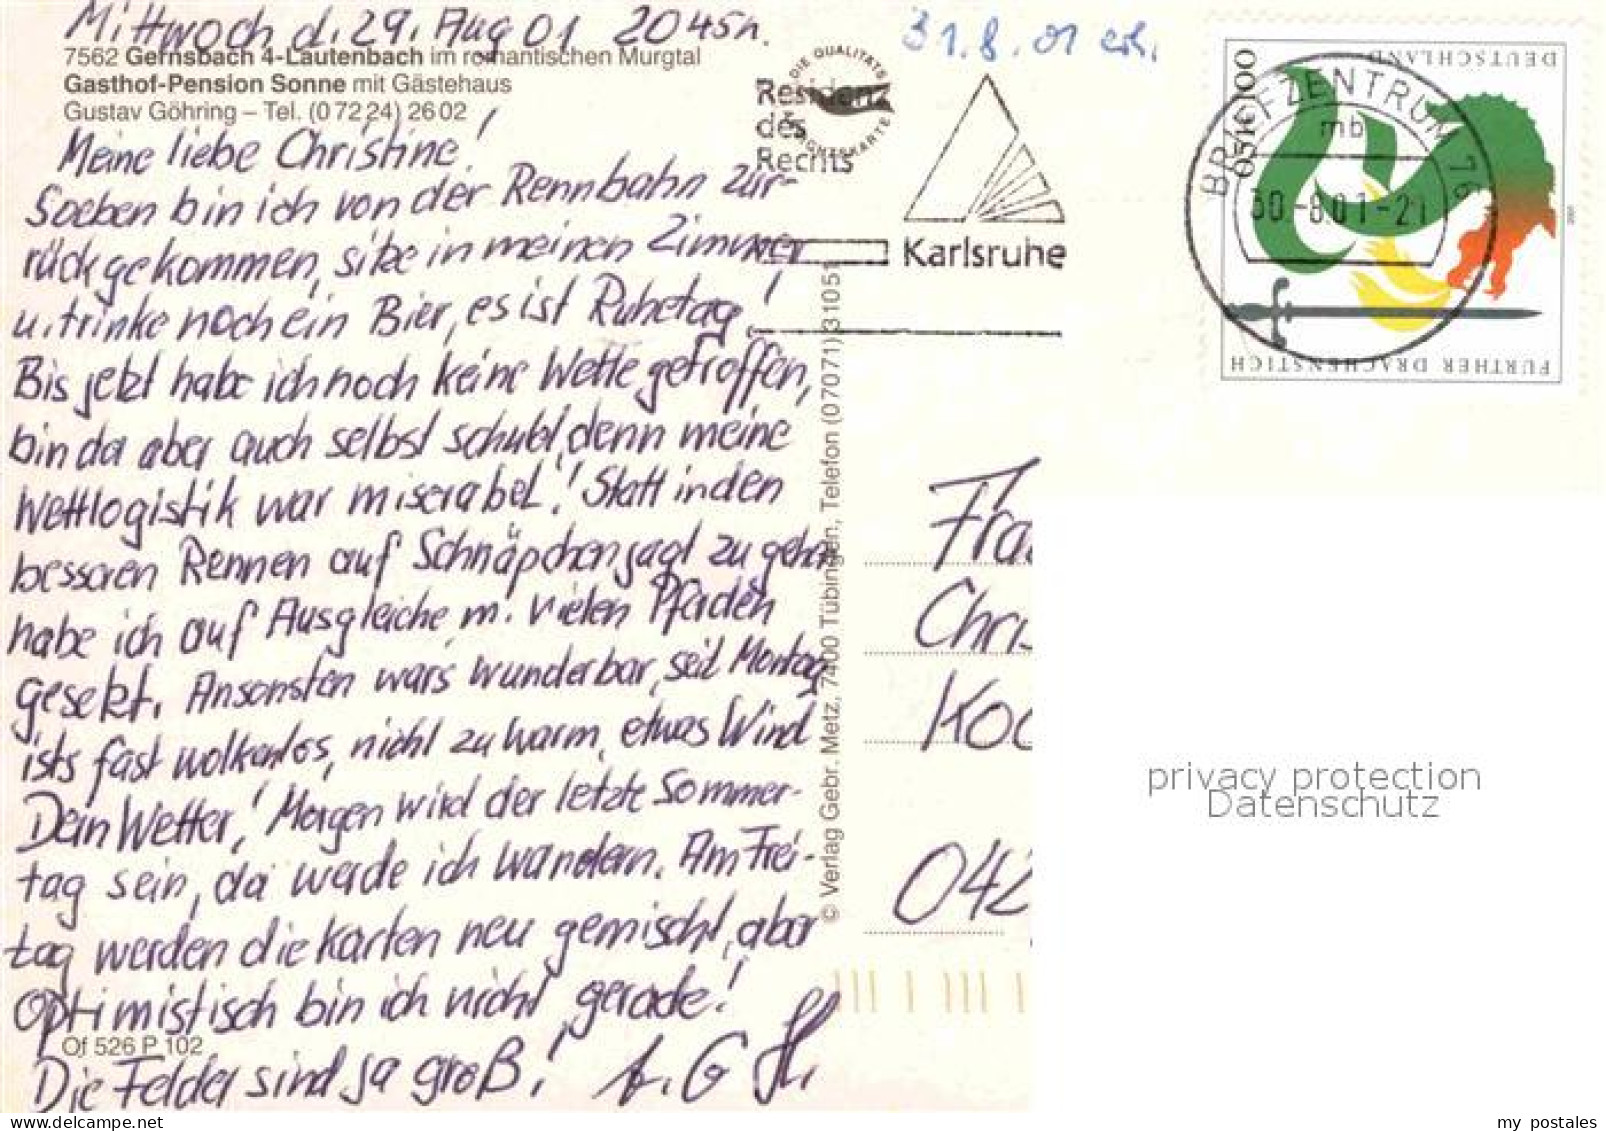 Mittwoch d. 29. Aug 01 20 45h.
7562 Gernsbach 4-Lautenbach im romantischen Murgtal
Gasthof-Pension Sonne mit Gästehaus
Gustav Göhring – Tel. (0 72 24) 26 02
Meine liebe Christine!
Soeben bin ich von der Rennbahn zur-
rückgekommen, sitze in meinen Zimmer
u. trinke noch ein Bier, es ist Ruhetag!
Bis jetzt habe ich noch keine Wette getroffen,
bin da aber auch selbst schuld, denn meine
Wettlogistik war miserabel! Statt in den
besseren Rennen auf Schnäpchenjagt zu gehn
habe ich auf Ausgleiche m. vielen Pferden
gesetzt. Ansonsten wars wunderbar, seit Montag
ists fast wolkenlos, nicht zu warm, etwas Wind
Dein Wetter! Morgen wird der letzte Sommer-
tag sein, da werde ich wandern. Am Frei-
tag werden die Karten neu gemischt, aber
optimistisch bin ich nicht gerade!
Of 526 P 102
Die Felder sind ja groß!
© Verlag Gebr. Metz, 7400 Tübingen, Telefon (07071) 31051
31.8.01 erh.
DIE QUALITÄTS
ANSICHTSKARTE
Residenz
des
Rechts
Karlsruhe
DEUTSCHLAND
100
0,51€
FURTHER DRACHENSTICH
BRIEFZENTRUM 76
mb
30.-8.01-21
Fra
Chris
Koc
042
privacy protection
Datenschutz
my postales